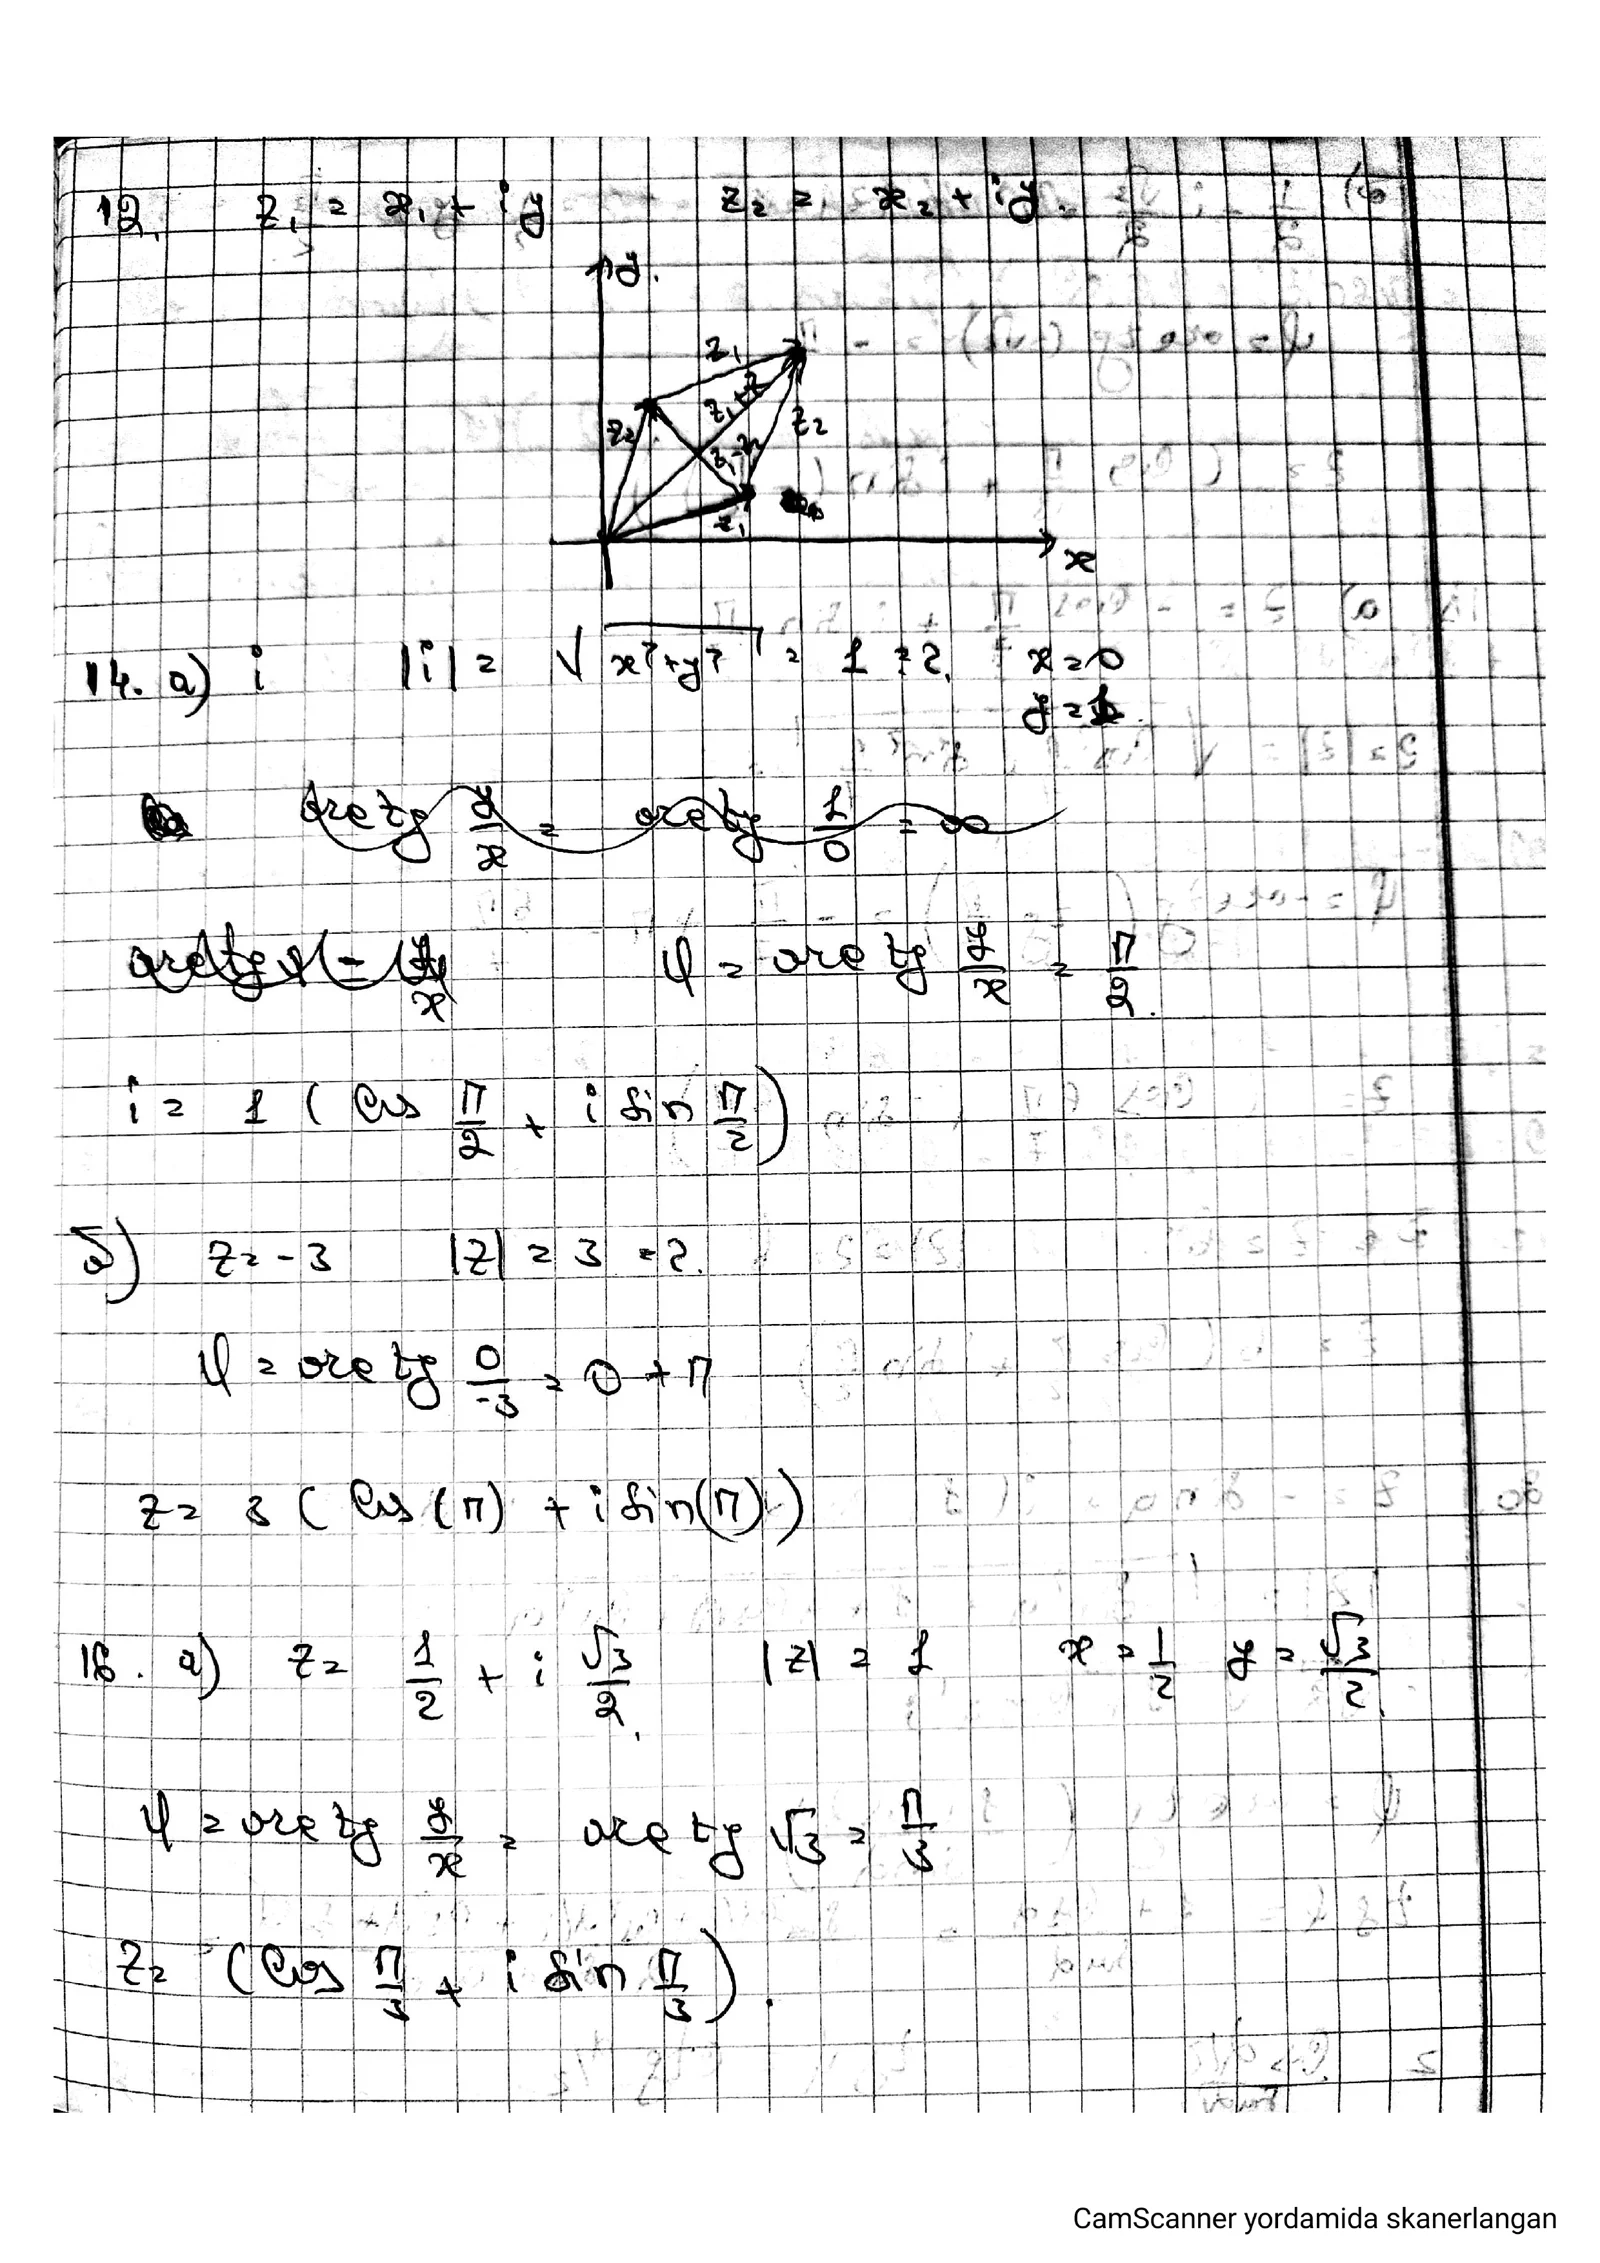 12. z₁ = x₁ + iy z₂ = x₂ + iy.
y.
z₁
z₁+z
z₂ z₂
z₁-z₂
z₁
x
14. a) i |i| = √x²+y² = 1 = r. x = 0
y = 1.
arctg y/x = arctg 1/0 = ∞
φ = arctg y/x = π/2.
i = 1 ( Cos π/2 + i Sin π/2 )
б) z = -3 |z| = 3 = r.
φ = arctg 0/-3 = 0 + π
z = 3 ( Cos (π) + i Sin(π) )
18. a) z = 1/2 + i √3/2. |z| = 1 x = 1/2 y = √3/2.
φ = arctg y/x = arctg √3 = π/3
z = ( Cos π/3 + i Sin π/3 ).
CamScanner yordamida skanerlangan